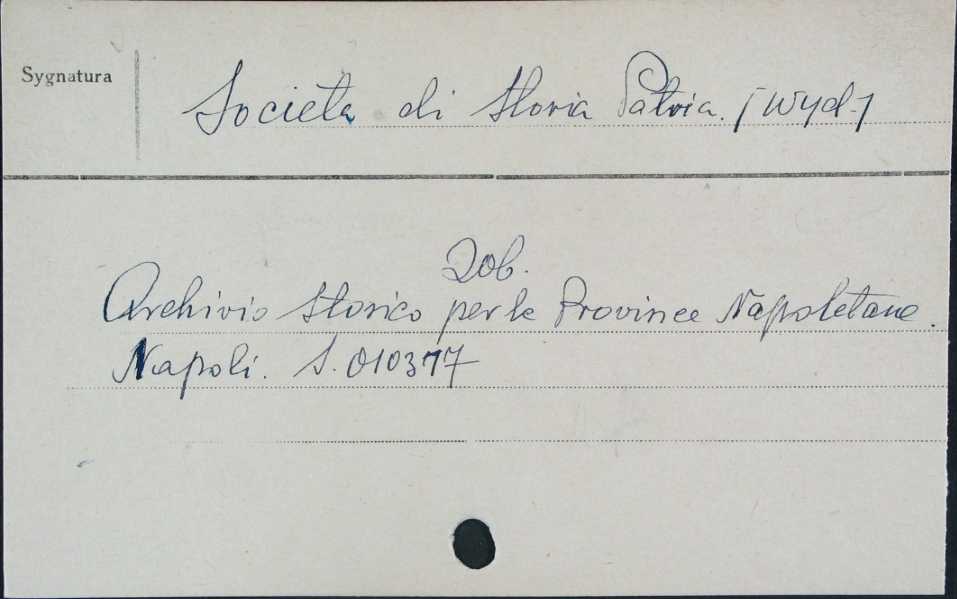 Sygnatura
Societa di Storia Patria. [Wyd.]
Zob.
Archivio Storico per le Province Napoletane.
Napoli. S. 010377